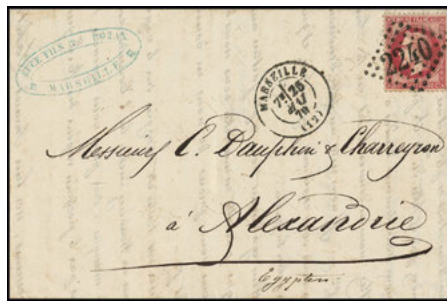 MARSEILLE
2240
MARSEILLE
7E 26
MAI
70
(12)
Messieurs C. Dauphin & Charreyron
à Alexandrie
Egypten